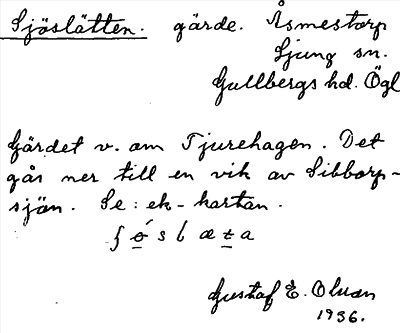 Sjöslätten. gärde. Åsmestorp
Ljung sn.
Gullbergs hd. Ögl
Gärdet v. om Tjurehagen. Det
går ner till en vik av Sibborp-
sjön. Se: ek-kartan.
Gustaf E. Olson
1936.